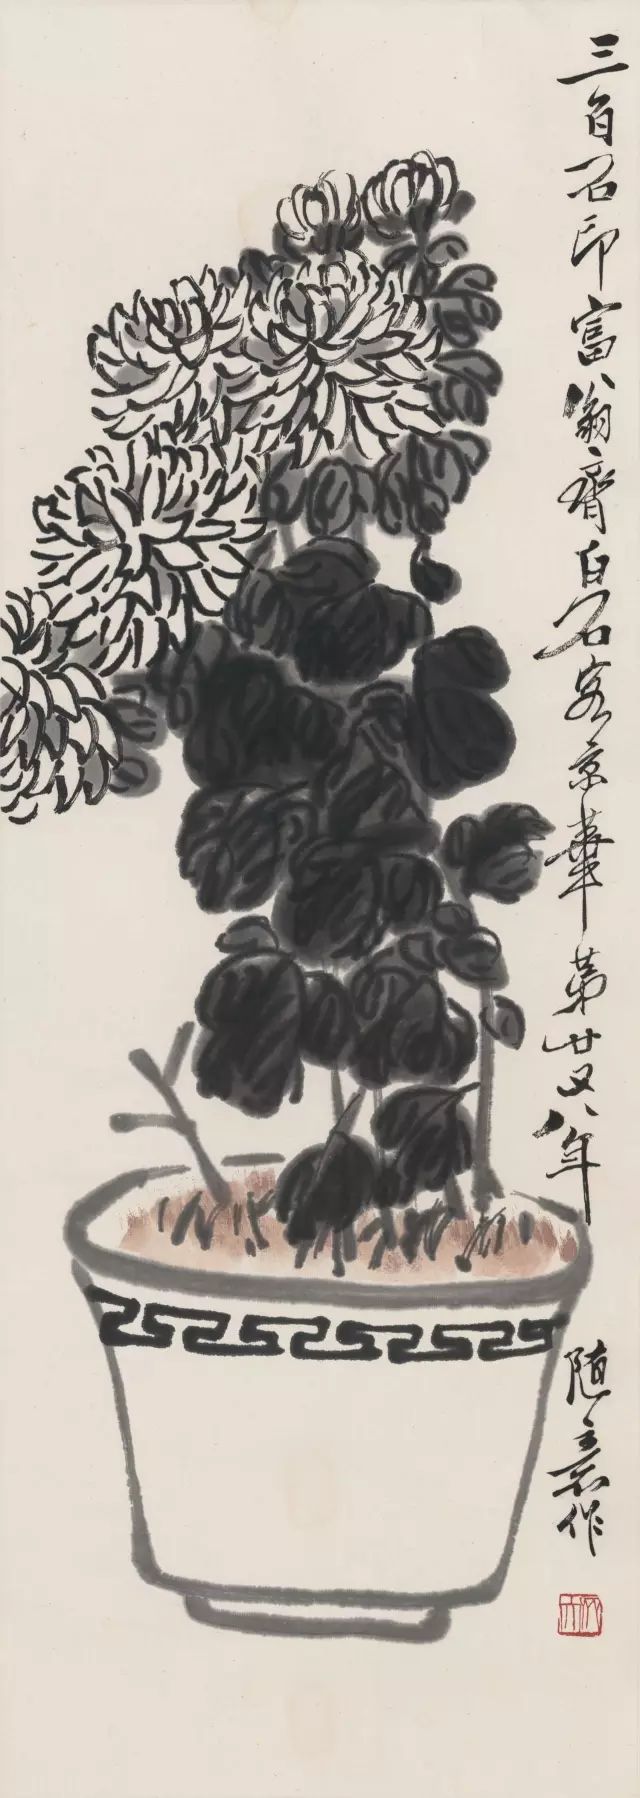 三百石印富翁齐白石客京华第廿又八年
随意作